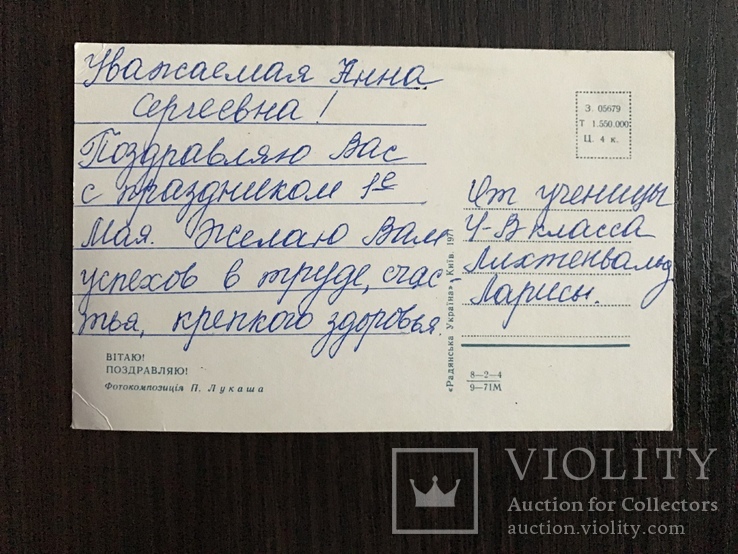 Уважаемая Анна
Сергеевна!
Поздравляю Вас
с праздником 1е
Мая. Желаю Вам
успехов в труде, счас
тья, крепкого здоровья.
ВІТАЮ!
ПОЗДРАВЛЯЮ!
Фотокомпозиція П. Лукаша
«Радянська Україна», Київ. 1971
З. 05679
Т 1.550.000
Ц. 4 к.
От ученицы
4-В класса
Лихтенвальд
Ларисы.
8—2—4
9—71М
VIOLITY
Auction for Collectors
auction.violity.com